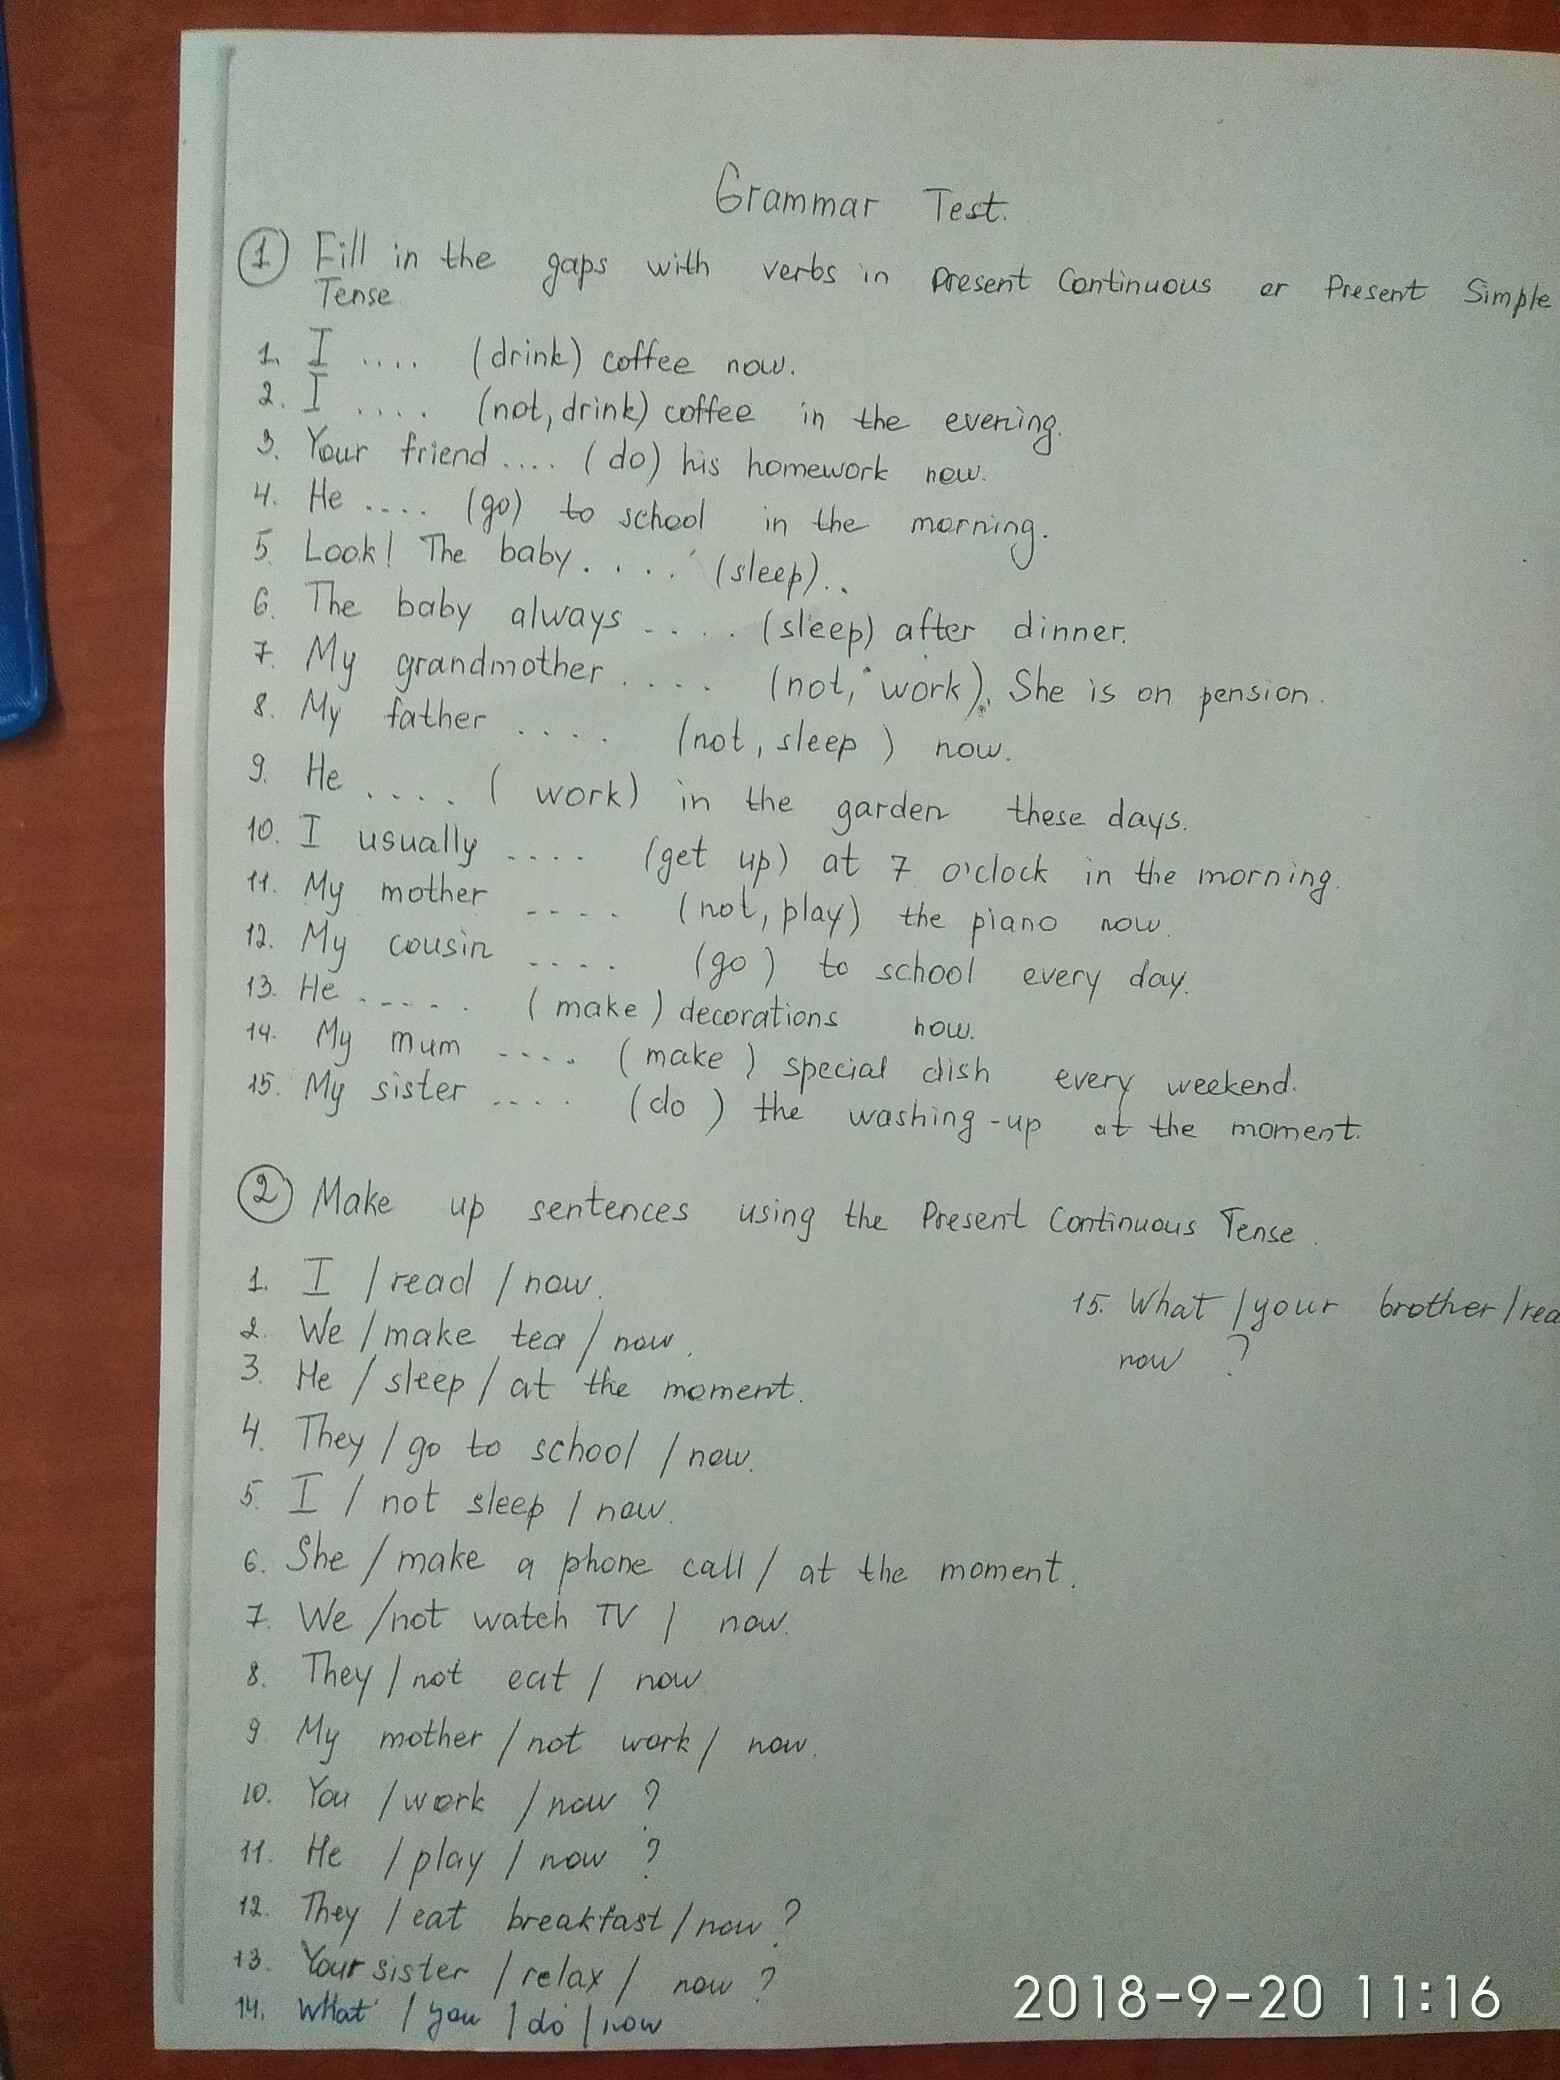 Grammar Test.
① Fill in the gaps with verbs in Present Continuous or Present Simple
Tense
1. I .... (drink) coffee now.
2. I .... (not, drink) coffee in the evening.
3. Your friend .... (do) his homework now.
4. He .... (go) to school in the morning.
5. Look! The baby ..... (sleep)..
6. The baby always .... (sleep) after dinner.
7. My grandmother .... (not, work). She is on pension.
8. My father .... (not, sleep) now.
9. He .... (work) in the garden these days.
10. I usually .... (get up) at 7 o'clock in the morning.
11. My mother .... (not, play) the piano now.
12. My cousin .... (go) to school every day.
13. He ..... (make) decorations now.
14. My mum .... (make) special dish every weekend.
15. My sister .... (do) the washing-up at the moment.
② Make up sentences using the Present Continuous Tense.
1. I / read / now.
2. We / make tea / now.
3. He / sleep / at the moment.
4. They / go to school / now.
5. I / not sleep / now.
6. She / make a phone call / at the moment.
7. We / not watch TV / now.
8. They / not eat / now
9. My mother / not work / now.
10. You / work / now ?
11. He / play / now ?
12. They / eat breakfast / now ?
13. Your sister / relax / now ?
14. What / you / do / now
15. What / your brother /
now ?
2018-9-20 11:16